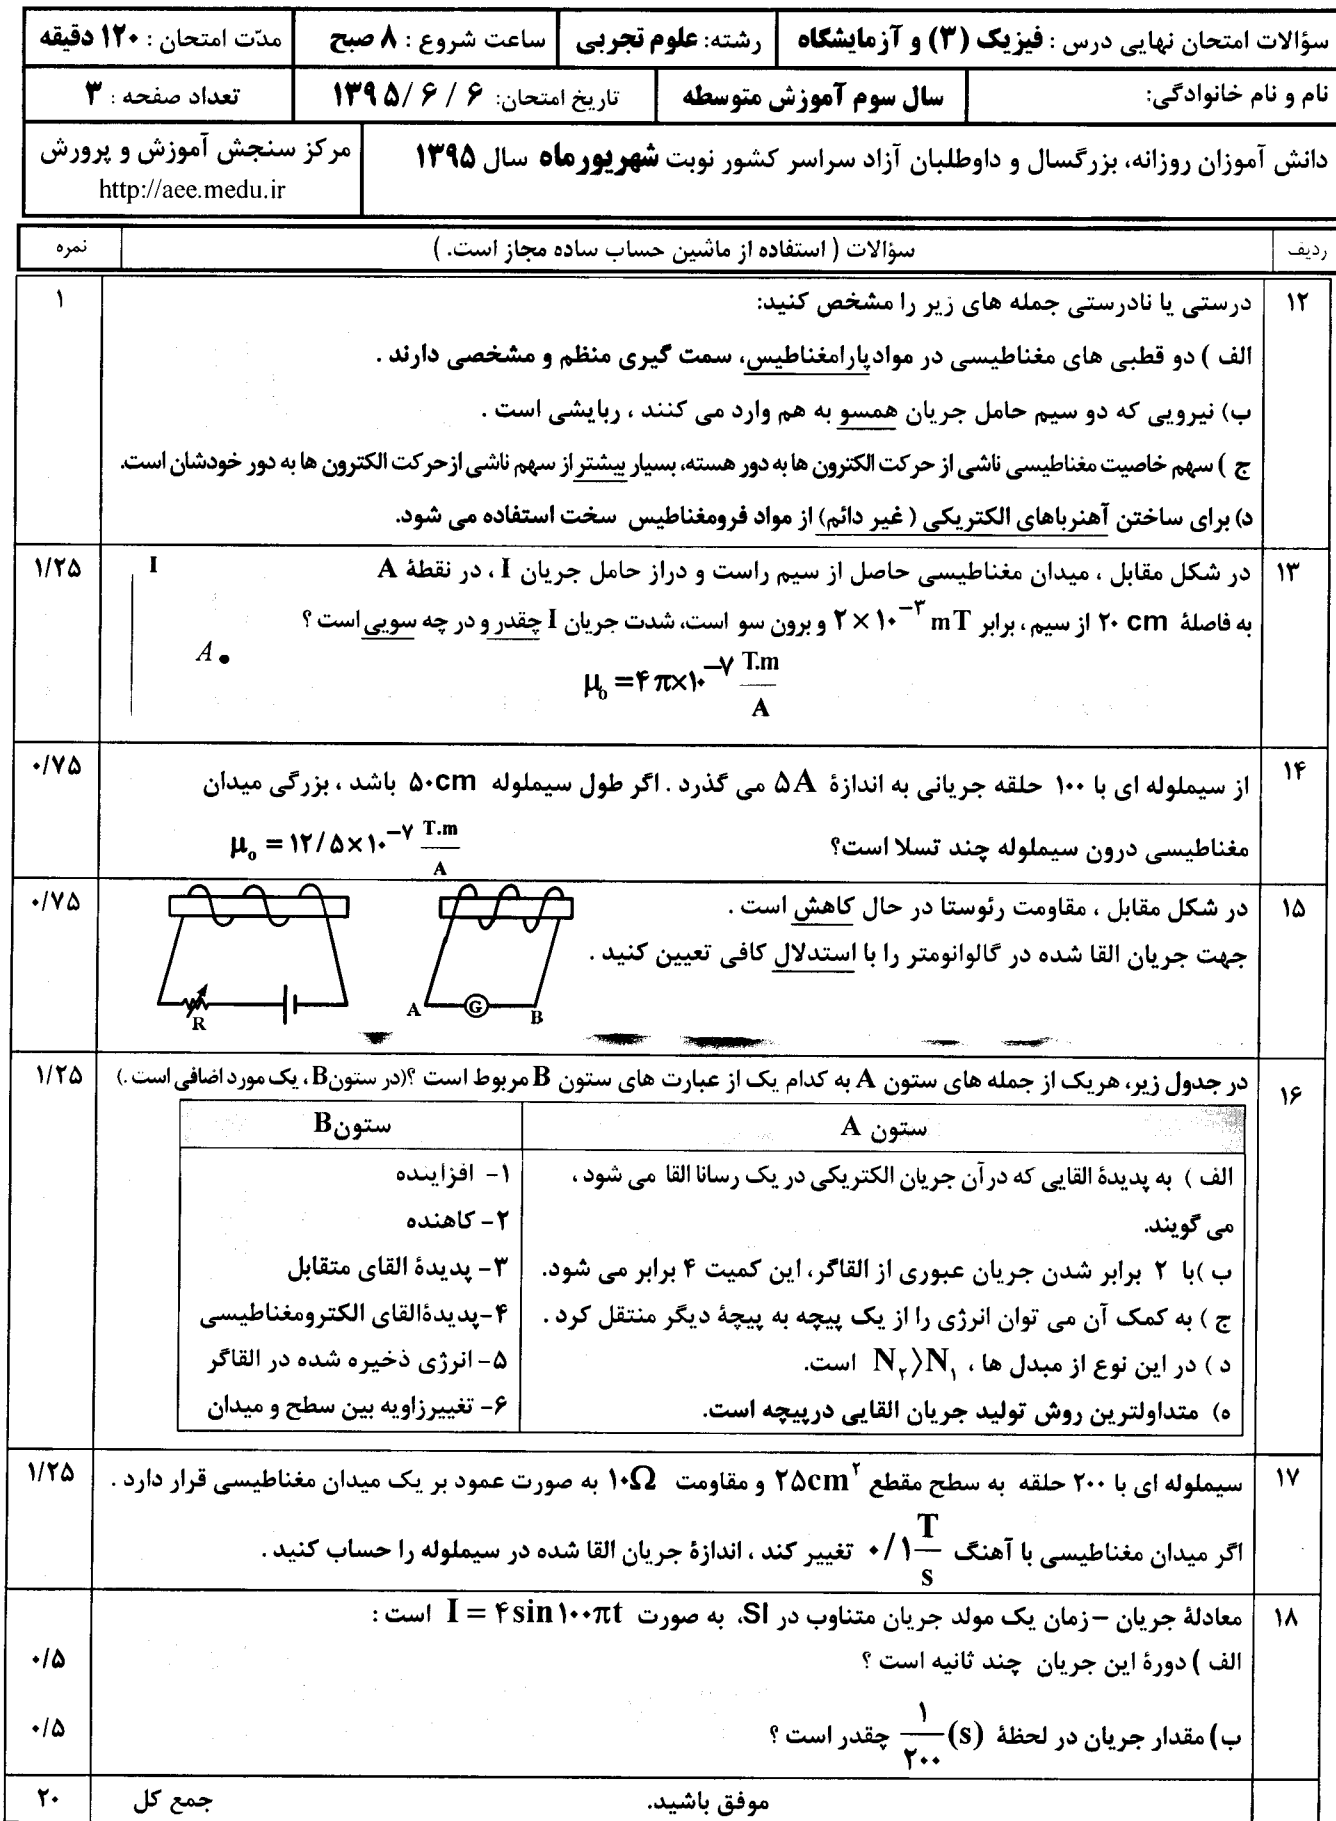 سؤالات امتحان نهایی درس : فیزیک (۳) و آزمایشگاه رشته: علوم تجربی ساعت شروع : ۸ صبح مدّت امتحان : ۱۲۰ دقیقه
نام و نام خانوادگی: سال سوم آموزش متوسطه تاریخ امتحان: ۶ / ۶ /۱۳۹۵ تعداد صفحه : ۳
دانش آموزان روزانه، بزرگسال و داوطلبان آزاد سراسر کشور نوبت شهریورماه سال ۱۳۹۵ مرکز سنجش آموزش و پرورش
http://aee.medu.ir
ردیف سؤالات ( استفاده از ماشین حساب ساده مجاز است. ) نمره
۱۲ درستی یا نادرستی جمله های زیر را مشخص کنید: ۱
الف ) دو قطبی های مغناطیسی در مواد پارامغناطیس، سمت گیری منظم و مشخصی دارند .
ب) نیرویی که دو سیم حامل جریان همسو به هم وارد می کنند ، ربایشی است .
ج ) سهم خاصیت مغناطیسی ناشی از حرکت الکترون ها به دور هسته، بسیار بیشتر از سهم ناشی ازحرکت الکترون ها به دور خودشان است.
د) برای ساختن آهنرباهای الکتریکی ( غیر دائم) از مواد فرومغناطیس سخت استفاده می شود.
۱۳ در شکل مقابل ، میدان مغناطیسی حاصل از سیم راست و دراز حامل جریان I ، در نقطهٔ A I ۱/۲۵
به فاصلهٔ ۲۰ cm از سیم ، برابر ۲×۱۰^−۳ mT و برون سو است، شدت جریان I چقدر و در چه سویی است ؟
A
μ₀ =۴π×۱۰^−۷ T.m/A
۱۴ از سیملوله ای با ۱۰۰ حلقه جریانی به اندازهٔ ۵A می گذرد . اگر طول سیملوله ۵۰cm باشد ، بزرگی میدان ۰/۷۵
مغناطیسی درون سیملوله چند تسلا است؟ μ₀ =۱۲/۵×۱۰^−۷ T.m/A
۱۵ در شکل مقابل ، مقاومت رئوستا در حال کاهش است . ۰/۷۵
جهت جریان القا شده در گالوانومتر را با استدلال کافی تعیین کنید .
R A G B
۱۶ در جدول زیر، هریک از جمله های ستون A به کدام یک از عبارت های ستون B مربوط است ؟(در ستونB، یک مورد اضافی است .) ۱/۲۵
ستون A ستونB
الف ) به پدیدهٔ القایی که درآن جریان الکتریکی در یک رسانا القا می شود ، ۱- افزاینده
می گویند. ۲- کاهنده
ب )با ۲ برابر شدن جریان عبوری از القاگر، این کمیت ۴ برابر می شود. ۳- پدیدهٔ القای متقابل
ج ) به کمک آن می توان انرژی را از یک پیچه به پیچهٔ دیگر منتقل کرد . ۴-پدیدهٔالقای الکترومغناطیسی
د ) در این نوع از مبدل ها ، N₂⟩N₁ است. ۵- انرژی ذخیره شده در القاگر
ه) متداولترین روش تولید جریان القایی درپیچه است. ۶- تغییرزاویه بین سطح و میدان
۱۷ سیملوله ای با ۲۰۰ حلقه به سطح مقطع ۲۵cm² و مقاومت ۱۰Ω به صورت عمود بر یک میدان مغناطیسی قرار دارد . ۱/۲۵
اگر میدان مغناطیسی با آهنگ ۰/۱ T/s تغییر کند ، اندازهٔ جریان القا شده در سیملوله را حساب کنید .
۱۸ معادلهٔ جریان – زمان یک مولد جریان متناوب در SI، به صورت I = ۴sin۱۰۰πt است :
الف ) دورهٔ این جریان چند ثانیه است ؟ ۰/۵
ب) مقدار جریان در لحظهٔ ۱/۲۰۰ (s) چقدر است ؟ ۰/۵
موفق باشید. جمع کل ۲۰